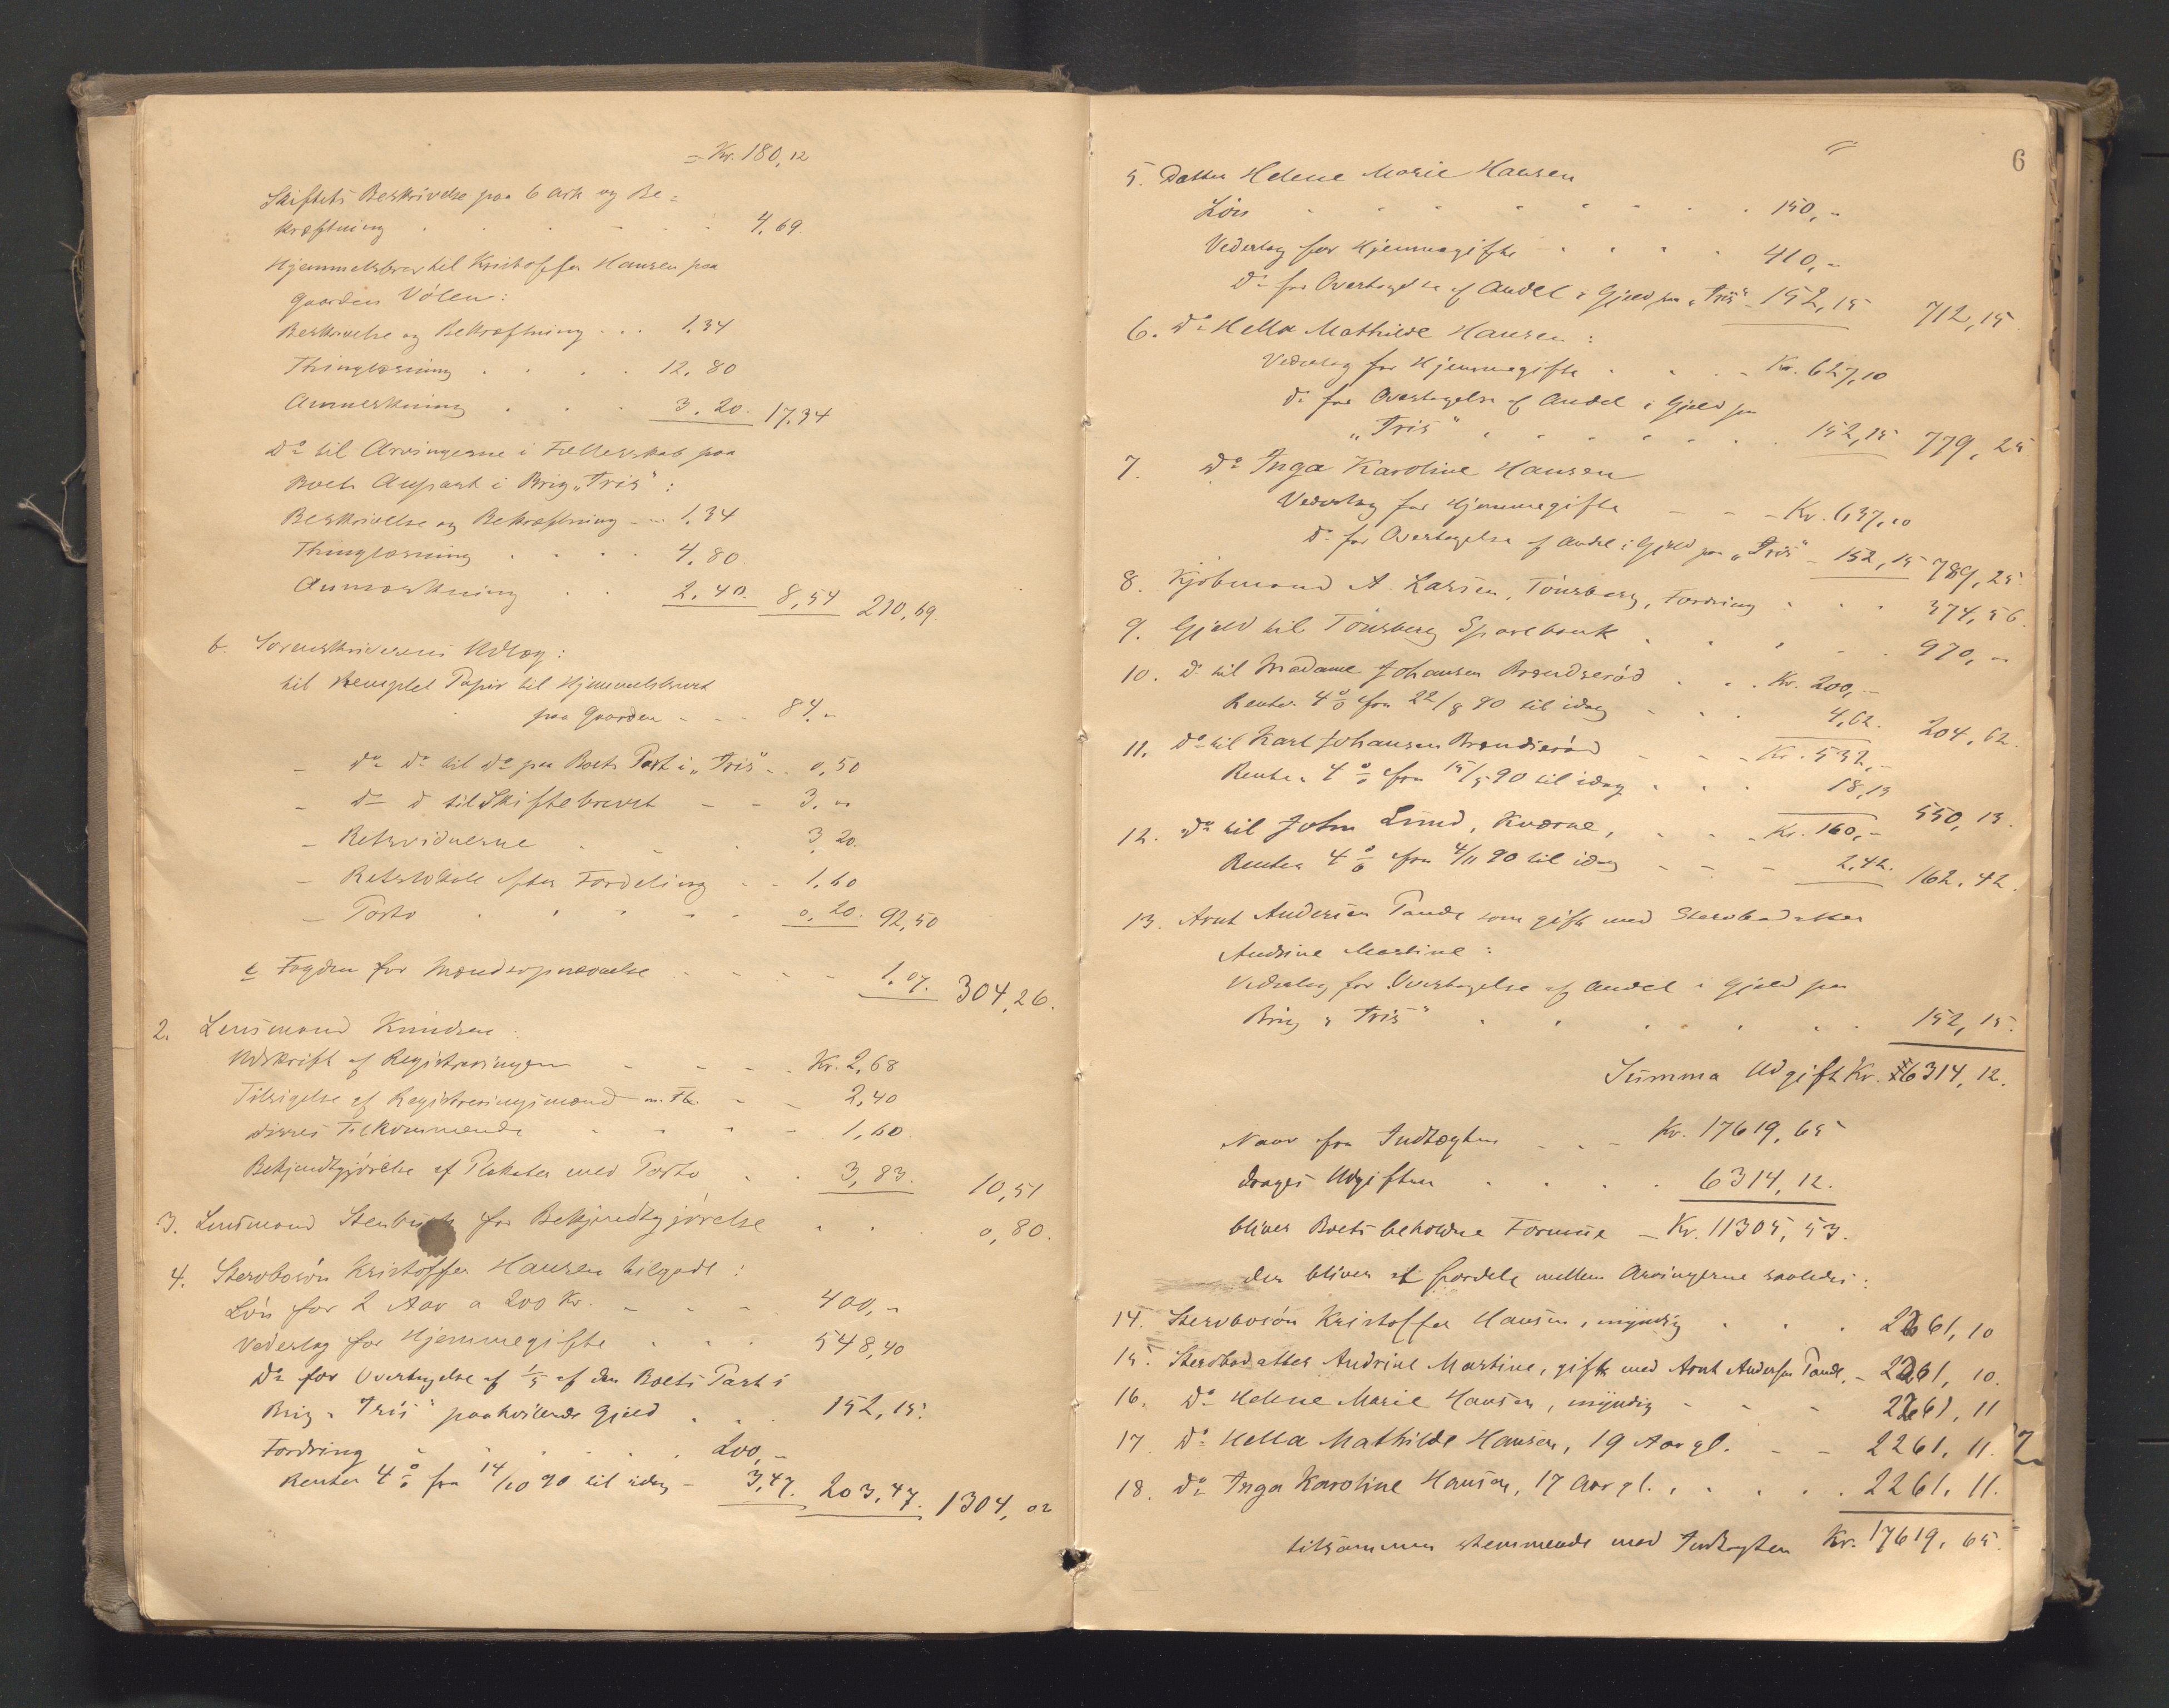 = Kr. 180,12
Skiftets Beskrivelse paa 6 Ark og Be=
kræftning . . . . . . 4,69
Hjemmelsbrev til Kristoffer Hansen paa
Gaarden Vølen:
Beskrivelse og Bekræftning . . . 1,34
Thinglæsning . . . . 12,80
Anmerkning . . . 3,20. 17,34
Do til Arvingerne i Fællesskab paa
Boets Anpart i Brig „Iris":
Beskrivelse og Bekræftning - - 1,34
Thinglæsning . . . . 4,80.
Anmærkning . . 2,40. 8,54 210,69.
b. Sorenskriverens Udlæg:
til stemplet Papir til Hjemmelsbrevet
paa Gaarden - - - 84,-
- do do til do paa Boets Part i „Iris" - . 0,50
- do d til Skiftebrevet - - 3,00
- Retsvidnerne . . . 3,20.
- Retslokale efter Fordeling - - 1,60
- Porto . . . . . 0,20. 92,50
c Fogden for Mandsopnævnelse . . . . 1,07. 304,26.
2. Lensmand Knudsen:
Udskrift af Registreringen - - - - Kr. 2,68
Tilsigelse af Registreringsmænd m. Fl. - - 2,40
disses Tilkommende - - - - 1,60.
Bekjendtgjørelse af Plakater med Porto . . 3,83. 10,51
3. Lensmand Stenbuck for Bekjendtgjørelse . . . 0,80.
4. Stervbosøn Kristoffer Hansen tilgode:
Løn for 2 Aar a 200 Kr. - - - - 400,-
Vederlag for Hjemmegifte . . . 548,40
Do for Overtagelse af 1/5 af den Boets Part i
Brig „Iris" paahvilende Gjeld . . . 152,15.
Fordring . . . . . . 200,-
Renter 4 % fra 14/10 90 til idag - 3,47. 203,47. 1304,02
6
5. Datter Helene Marie Hansen
Løn . . . . . . . . 150,-
Vederlag for Hjemmegifte - . . . 410,-
Do for Overtagelse af Andel i Gjeld paa „Iris" - 152,15 712,15
6. Do Hella Mathilde Hansen:
Vederlag for Hjemmegifte . . . - Kr. 627,10
do for Overtagelse af Andel i Gjeld paa
„Iris" . . . . . . . 152,15 779,25
7. Do Inga Karoline Hansen
Vederlag for Hjemmegifte - - - Kr. 637,10
Do for Overtagelse af Andel i Gjeld paa „Iris" - 152,15 789,25.
8. Kjøbmand A. Larsen, Tønsberg, Fordring . . . 374,56.
9. Gjeld til Tønsberg Sparebank . . . - . 970,-
10. Do til Madame Johansen Brændserød . . . Kr. 200,-
Renter 4 % fra 22/8 90 til idag - - - 4,62. 204,62.
11. Do til Karl Johansen Brændserød - - - Kr. 532,-
Renter 4 % fra 15/5 90 til idag . . . 18,13 550,13.
12. Do til John Lund, Kværne, . . - Kr. 160,-
Renter 4 % fra 4/11 90 til idag - - - 2,42. 162,42.
13. Arnt Andersen Tande som gift med Stervbodatter
Andrine Martine:
Vederlag for Overtagelse af Andel i Gjeld paa
Brig „Iris" . . . . . . 152,15.
Summa Udgift Kr. 6314,12.
Naar fra Indtægten - - - Kr. 17619,65
drages Udgiften . . . . 6314,12.
bliver Boets beholdne Formue - Kr. 11305,53.
der bliver at fordele mellem Arvingerne saaledes:
14. Stervbosøn Kristoffer Hansen, myndig . . . 2261,10
15. Stervbodatter Andrine Martine, gift med Arnt Andersen Tande, - 2261,10.
16. Do Helene Marie Hansen, myndig - - - 2261,11
17. Do Hella Mathilde Hansen, 19 Aar gl. - - 2261,11.
18. Do Inga Karoline Hansen, 17 Aar gl. . . . . . 2261,11.
tilsammen stemmende med Indtægten Kr. 17619,65.